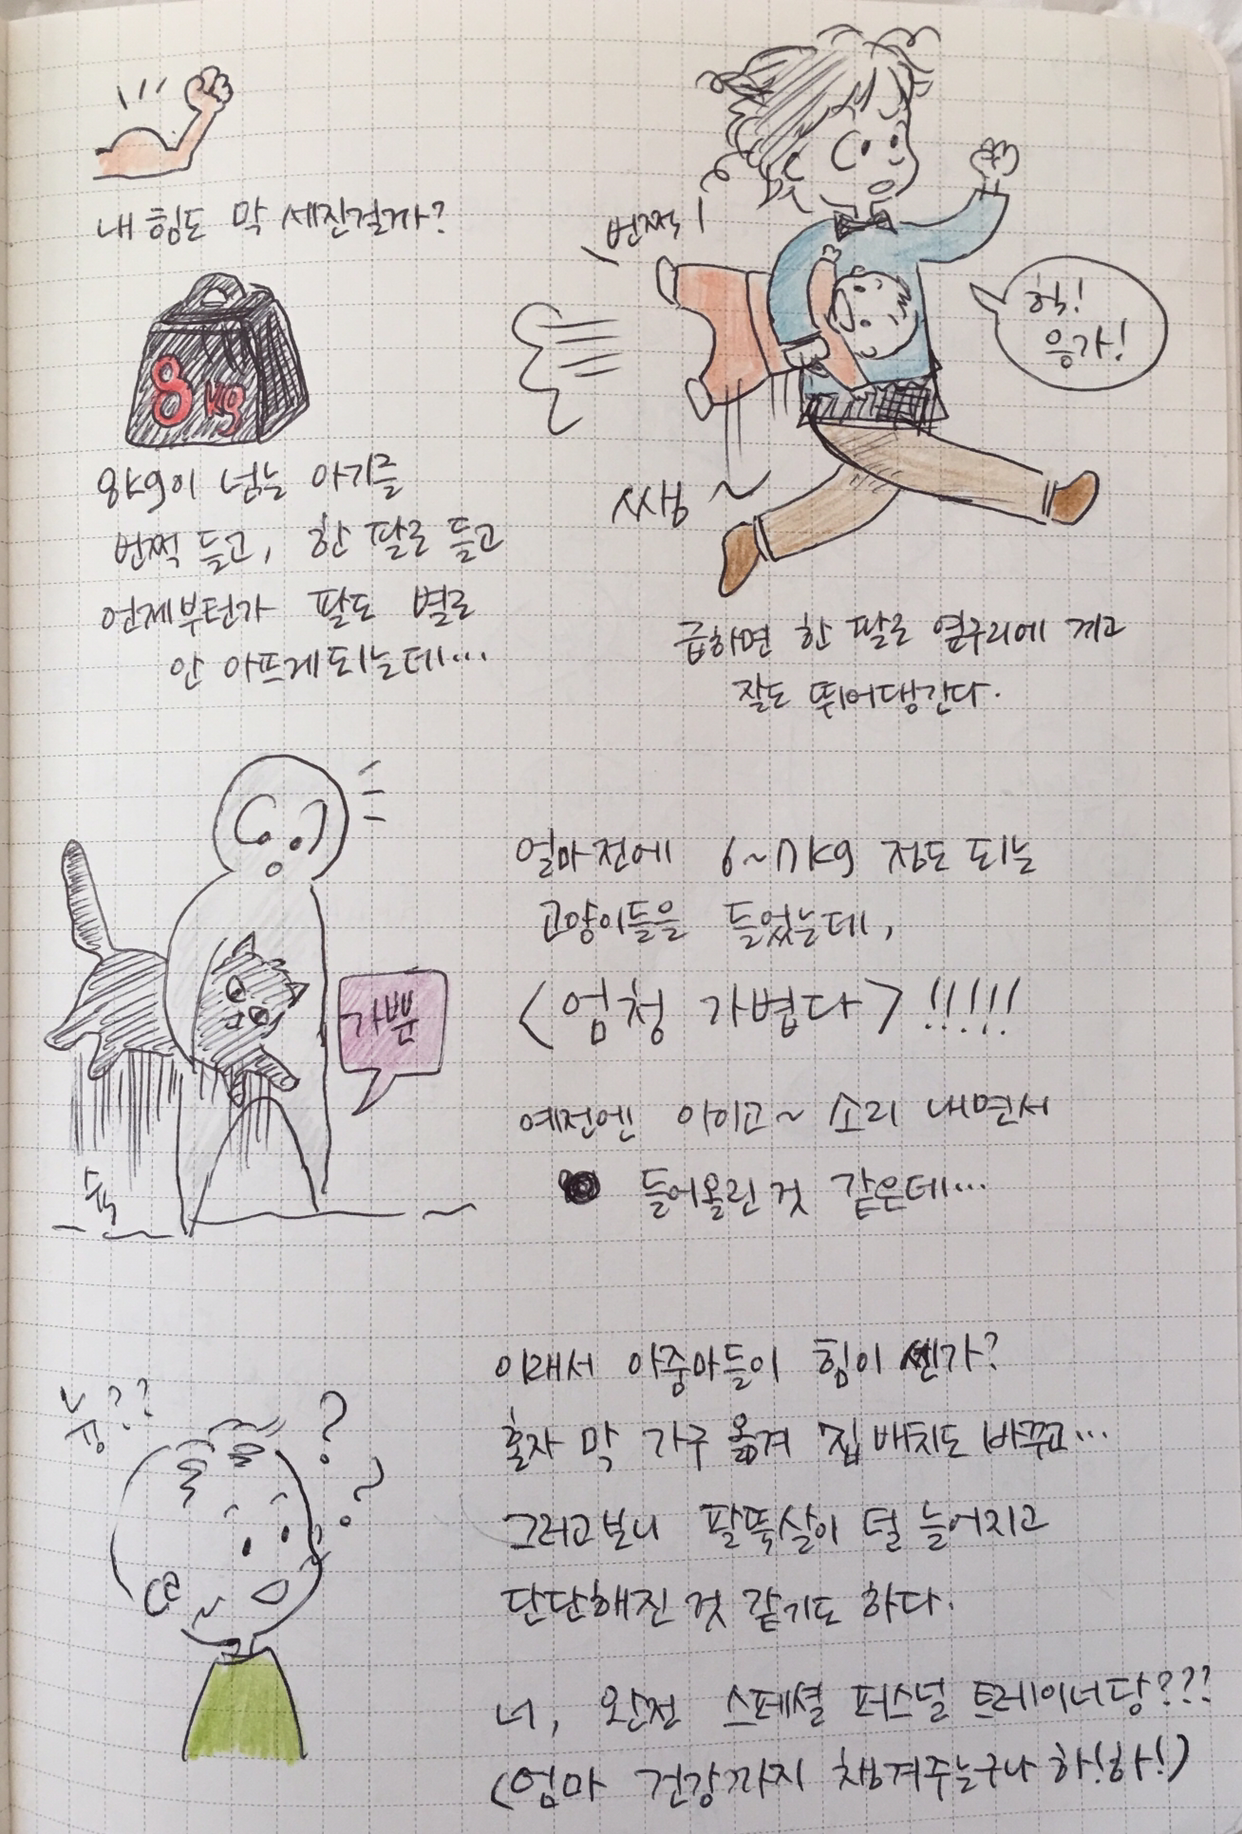 내 힘도 막 세진걸까?
8kg
8kg이 넘는 아기를
번쩍 들고, 한 팔로 들고
언제부턴가 팔도 별로
안 아프게되는데...
번쩍!
헉!
응가!
쌔앵~
급하면 한 팔로 옆구리에 끼고
잘도 뛰어댕긴다.
가뿐
슉
얼마전에 6~7kg 정도 되는
고양이들을 들었는데,
<엄청 가볍다>!!!!!
예전엔 아이고~ 소리 내면서
들어올린것 같은데...
이래서 아줌마들이 힘이 센가?
혼자 막 가구 옮겨 집 배치도 바꾸고...
그러고보니 팔뚝살이 덜 늘어지고
단단해진 것 같기도 하다.
너, 완전 스페셜 퍼스널 트레이너당???
(엄마 건강까지 챙겨주는구나 하!하!)
눙??
??